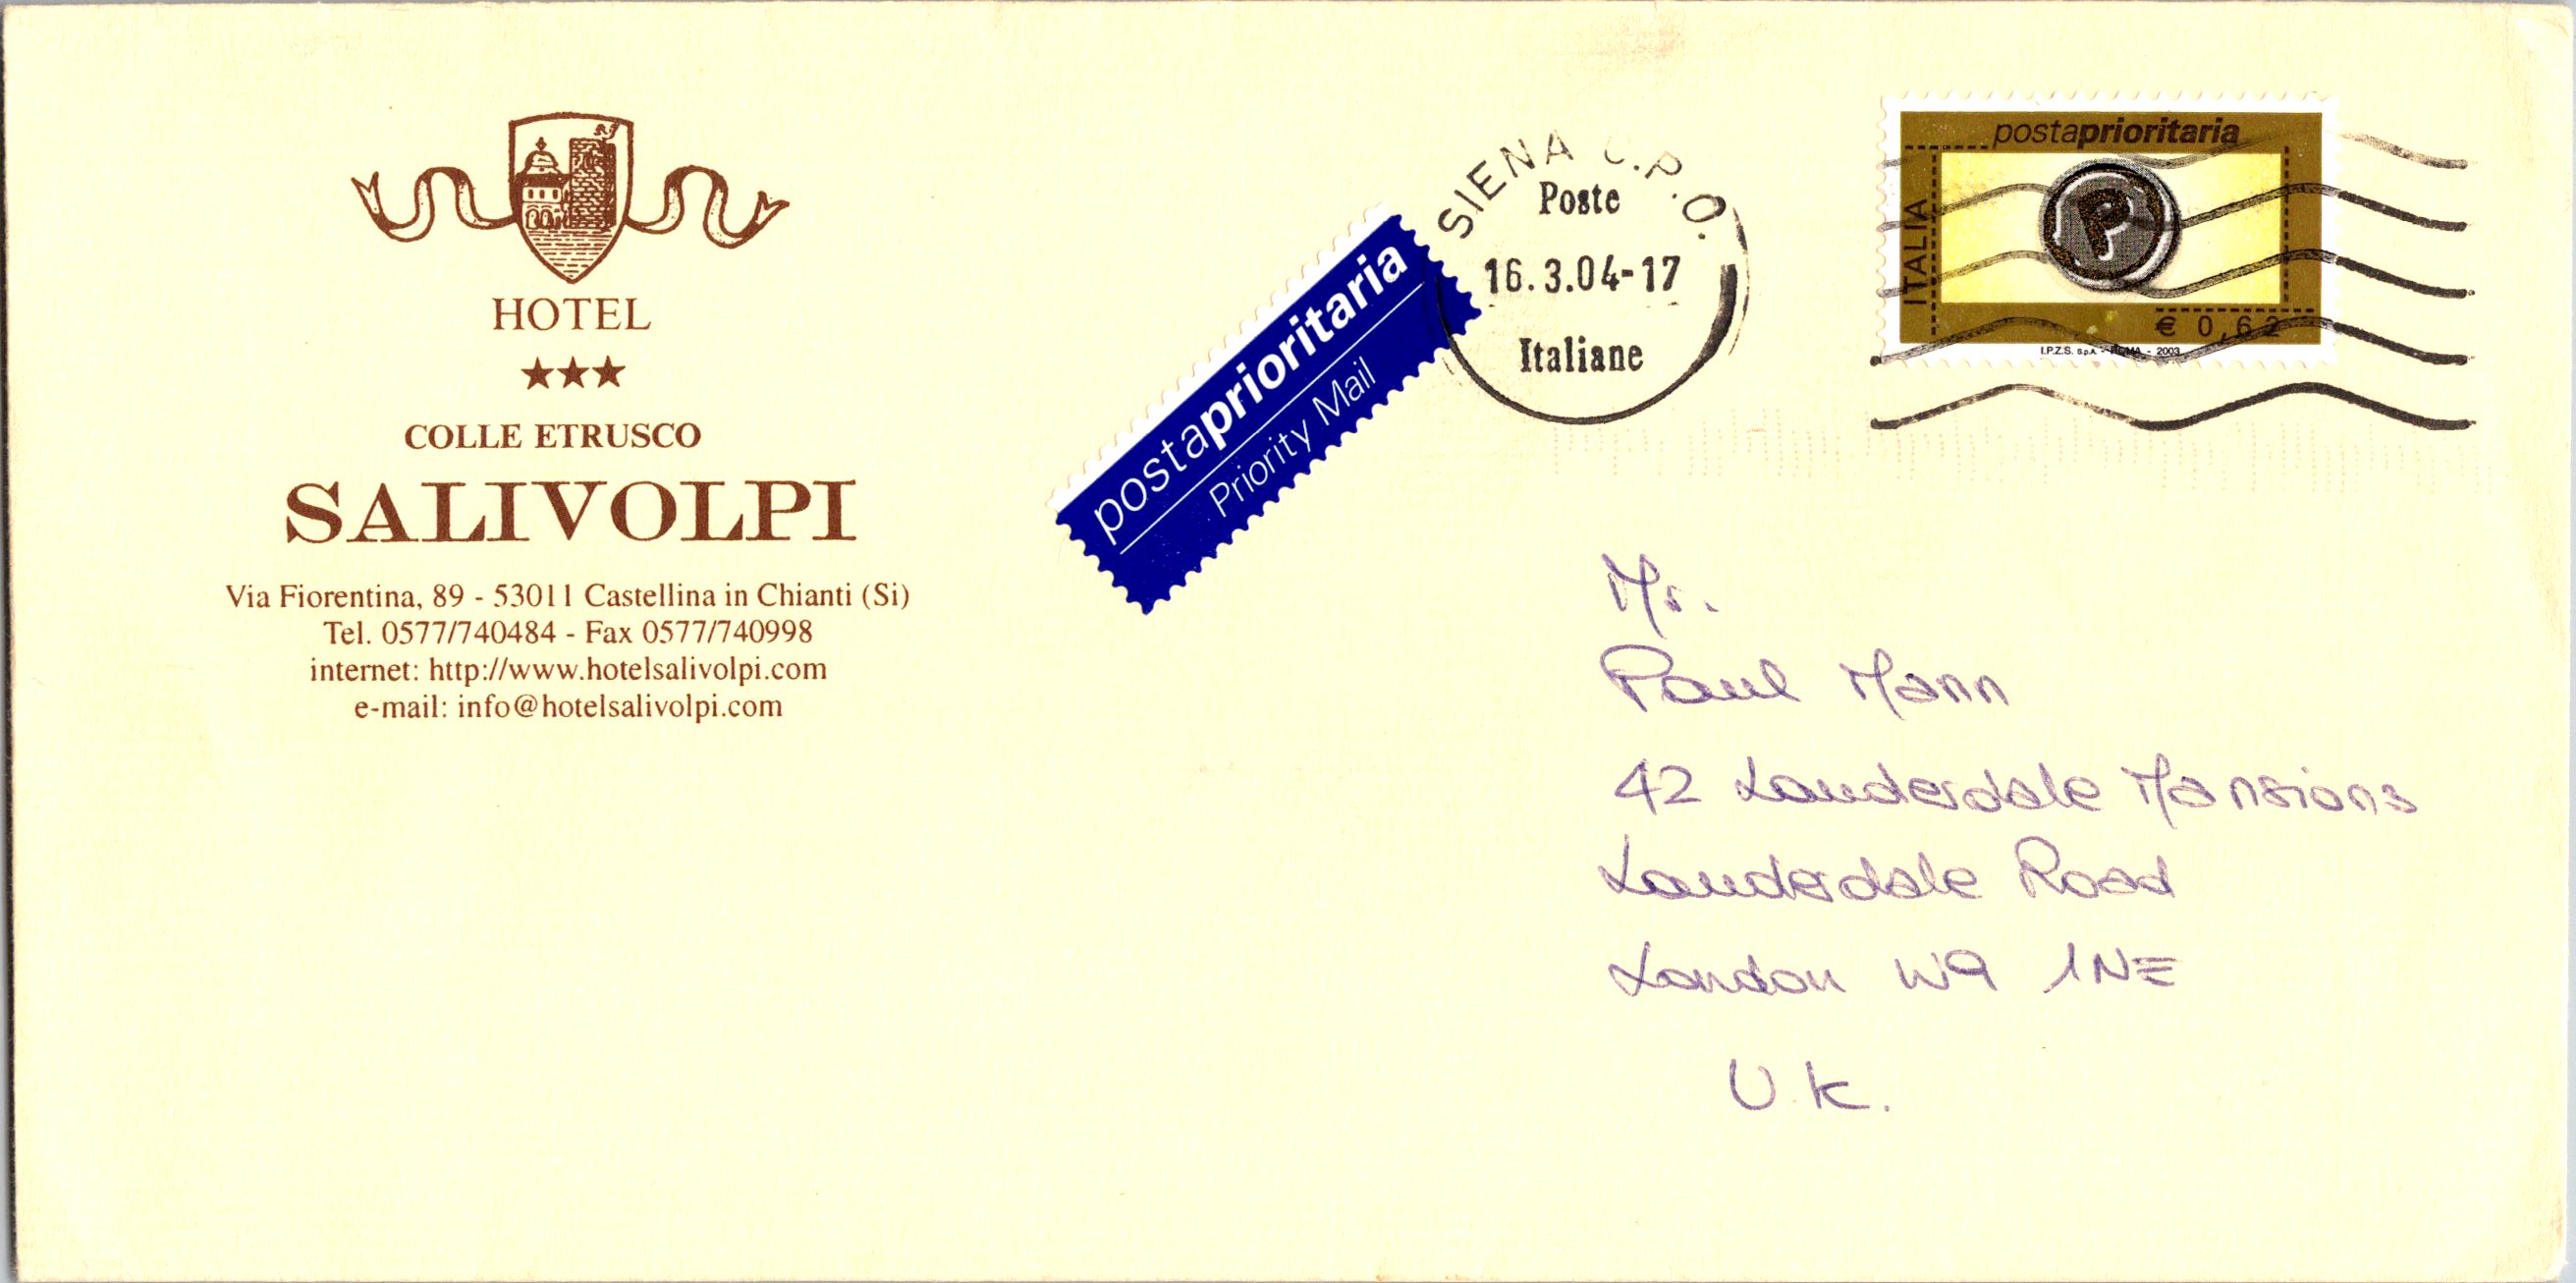 HOTEL
★★★
COLLE ETRUSCO
SALIVOLPI
Via Fiorentina, 89 - 53011 Castellina in Chianti (Si)
Tel. 0577/740484 - Fax 0577/740998
internet: http://www.hotelsalivolpi.com
e-mail: info@hotelsalivolpi.com
postaprioritaria
Priority Mail
SIENA C.P.O.
Poste
16.3.04-17
Italiane
postaprioritaria
ITALIA
P
€ 0,62
I.P.Z.S. S.p.A. - ROMA - 2003
Mr.
Paul Mann
42 Lauderdale Mansions
Lauderdale Road
London W9 1NE
U.K.